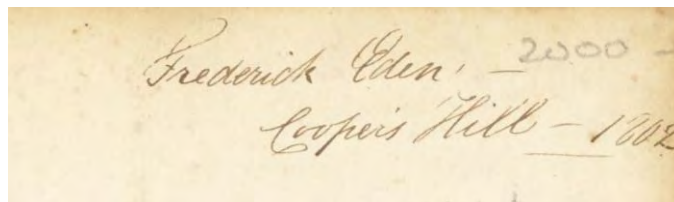 Frederick Eden. — 2000 –
Coopers Hill — 1802